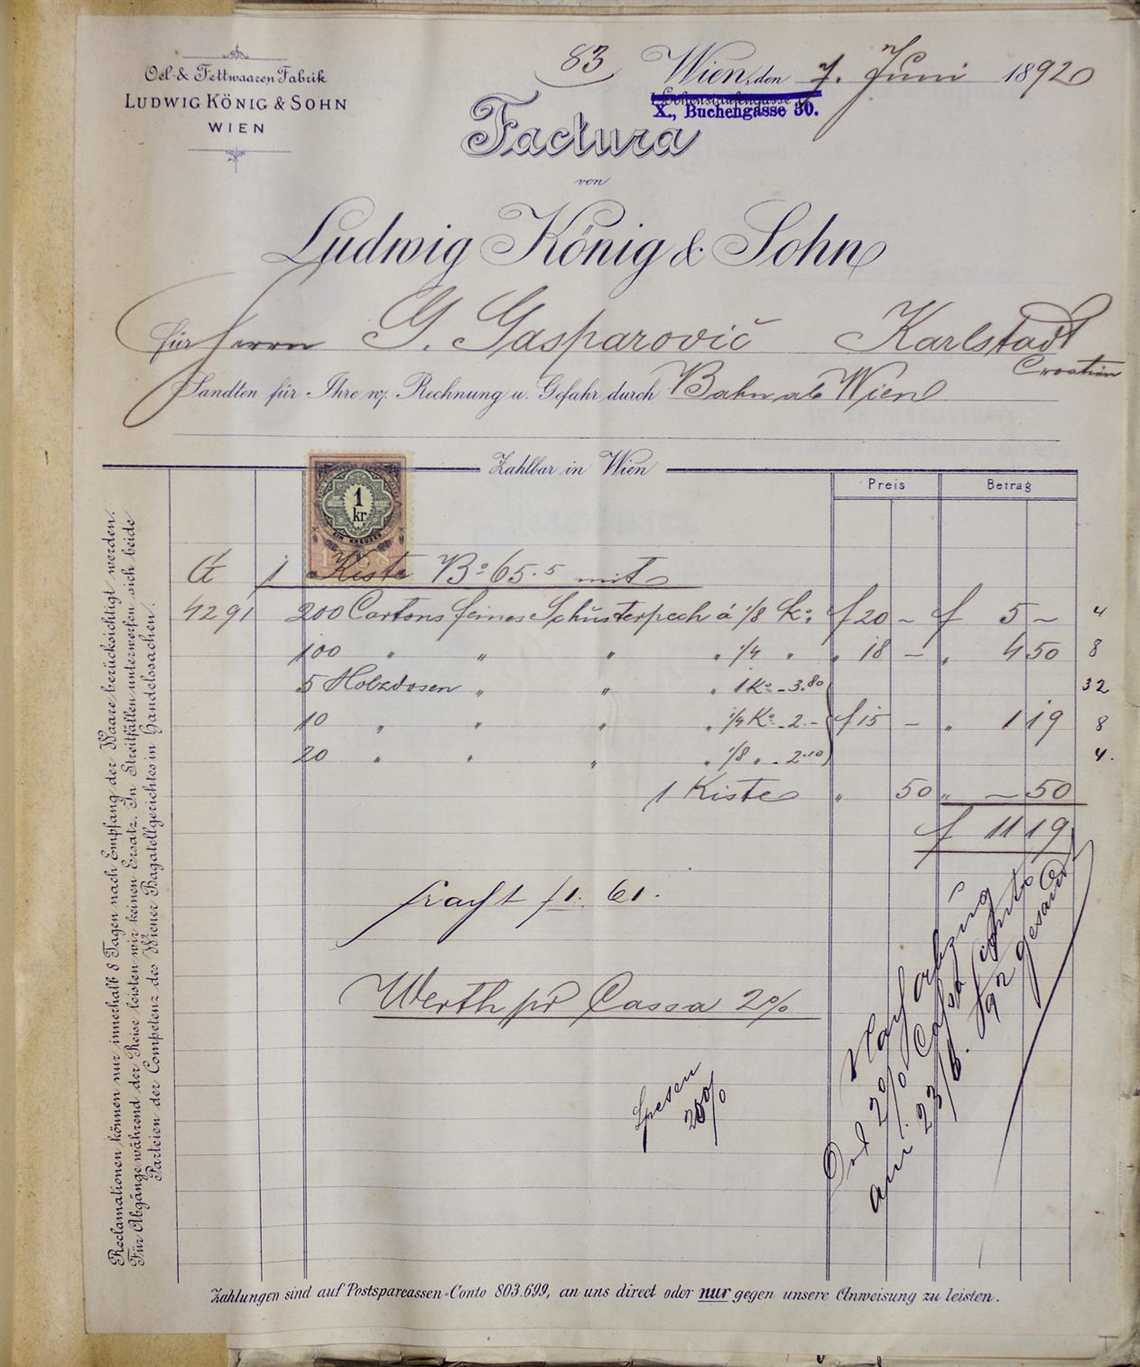 Oel-& Fettwaaren Fabrik
LUDWIG KÖNIG & SOHN
WIEN
83
Wien, den 7. Juni 1892
X., Buchengasse 30.
Factura
von
Ludwig König & Sohn
für Herrn G. Gasparović Karlstadt
Croatien
Sandten für Ihre w. Rechnung u. Gefahr durch Bahn ab Wien
Zahlbar in Wien
Preis Betrag
1 kr.
EIN KREUZER
1 Kiste Bº 65.5 mit
4291 200 Cartons feines Schusterpech á 1/8 Kº f 20 – f 5 – 4
100 " " " " 1/4 " " 18 – " 4 50 8
5 Holzdosen " " " 1 Kº - 3.80 32
10 " " " " 1/4 Kº - 2.- f 15 – " 1 19 8
20 " " " " 1/8 " - 2.10 4.
1 Kiste " 50 " – 50
f 11 19
fracht f 1. 61.
Werth pr Cassa 2%
Spesen
20%
Nach abzug
2% Cassa Conto
am 23/6. 92 gesandt
Reclamationen können nur innerhalb 8 Tagen nach Empfang der Waare berücksichtigt werden.
Für Abgänge während der Reise leisten wir keinen Ersatz. In Streitfällen unterwerfen sich beide
Parteien der Competenz des Wiener Bagatellgerichtes in Handelssachen.
Zahlungen sind auf Postsparcassen-Conto 803.699, an uns direct oder nur gegen unsere Anweisung zu leisten.